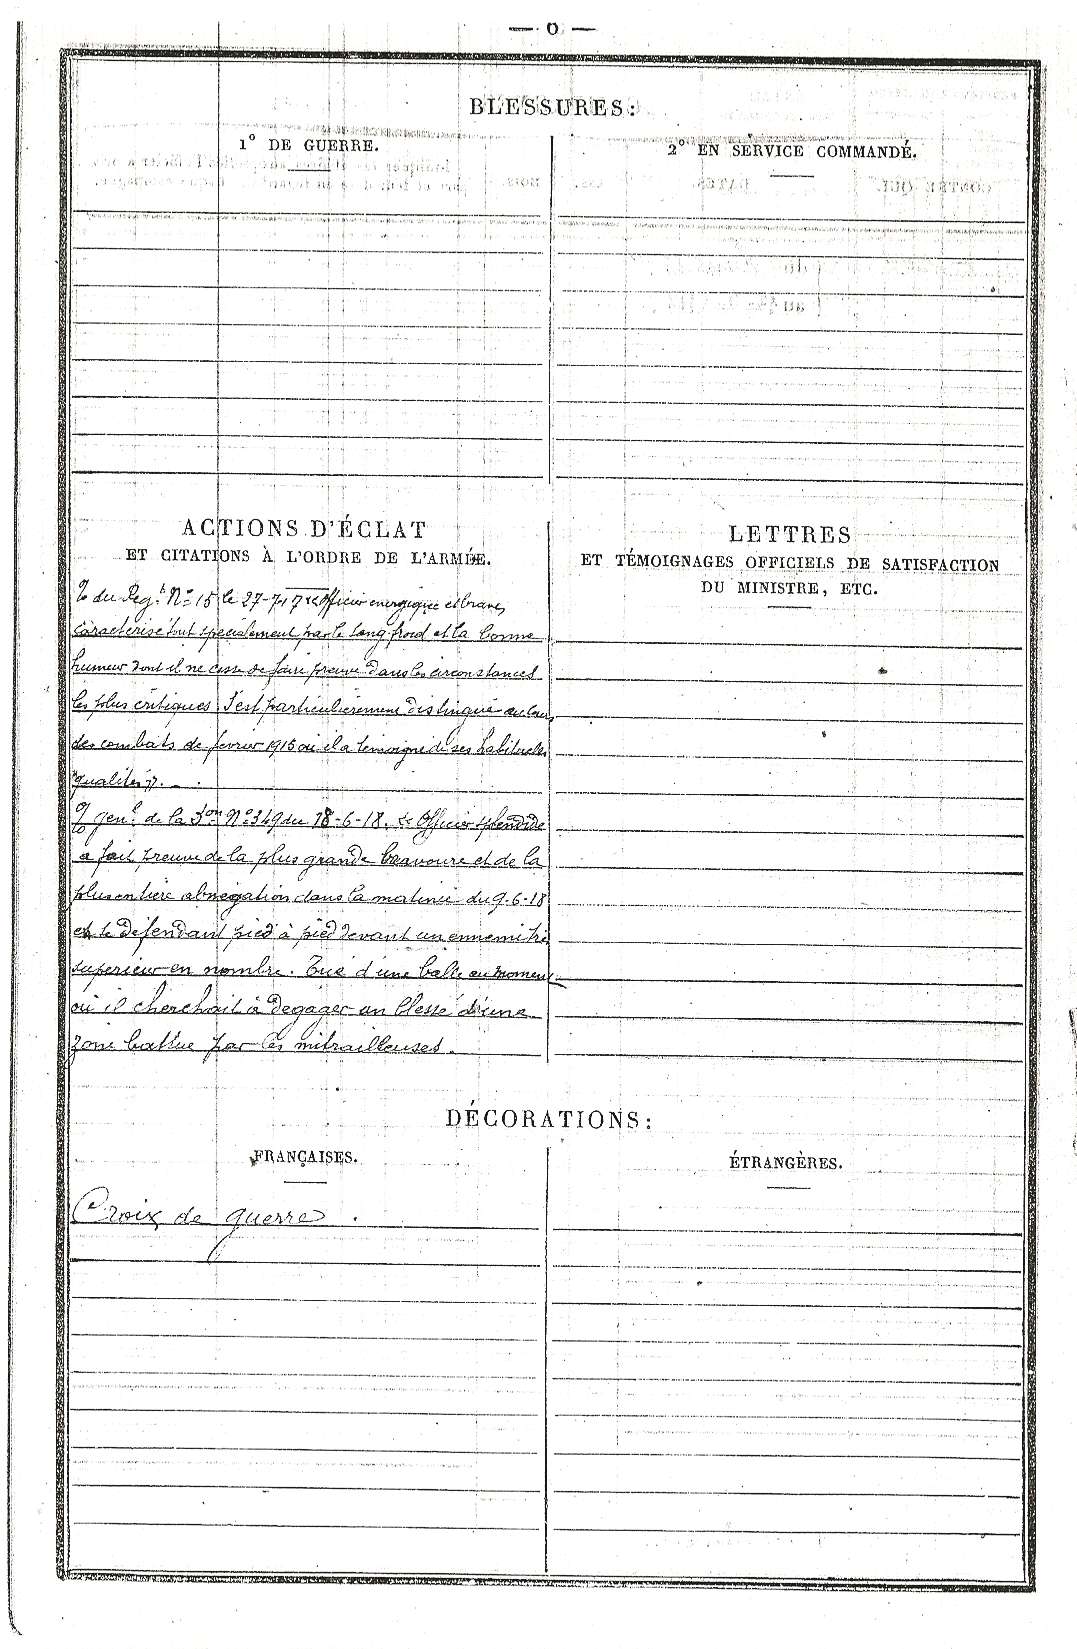 — 6 —
BLESSURES:
1° DE GUERRE.
2° EN SERVICE COMMANDÉ.
ACTIONS D'ÉCLAT
ET CITATIONS À L'ORDRE DE L'ARMÉE.
du Reg.t N° 15 le 27-7-17 « Officier energique et brave,
caractérisé tout spécialement par le sang froid et la bonne
humeur dont il ne cesse de faire preuve dans les circonstances
les plus critiques. S'est particulièrement distingué au cours
des combats de fevrier 1915 où il a témoigné de ses habituelles
qualités ».
Gen.l de la 3on N° 349 du 18-6-18. « Officier splendide
a fait preuve de la plus grande bravoure et de la
plus entière abnégation dans la matinée du 9-6-18
en se défendant pied à pied devant un ennemi très
superieur en nombre. Tué d'une balle au moment
où il cherchait à dégager un blessé d'une
zone battue par les mitrailleuses.
LETTRES
ET TÉMOIGNAGES OFFICIELS DE SATISFACTION
DU MINISTRE, ETC.
DÉCORATIONS:
FRANÇAISES.
Croix de guerre.
ÉTRANGÈRES.